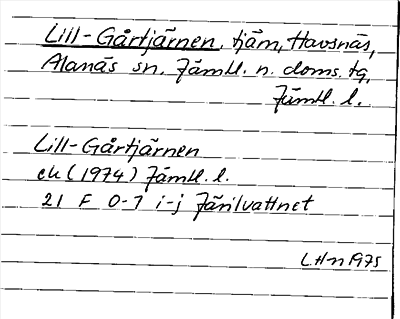 Lill-Gårtjärnen, tjärn, Havsnäs,
Alanäs sn. Jämtl. n. doms. tg.
Jämtl. l.
Lill-Gårtjärnen
ek (1974) Jämtl. l.
21 F 0-1 i-j Järilvattnet
LHn 1975